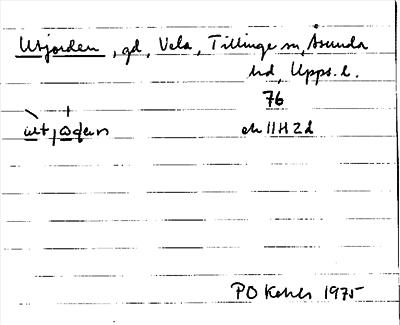 Utjorden, gd, Vela, Tillinge sn, Åsunda
hd, Upps. l.
76
ek 11H 2d
PO 1975